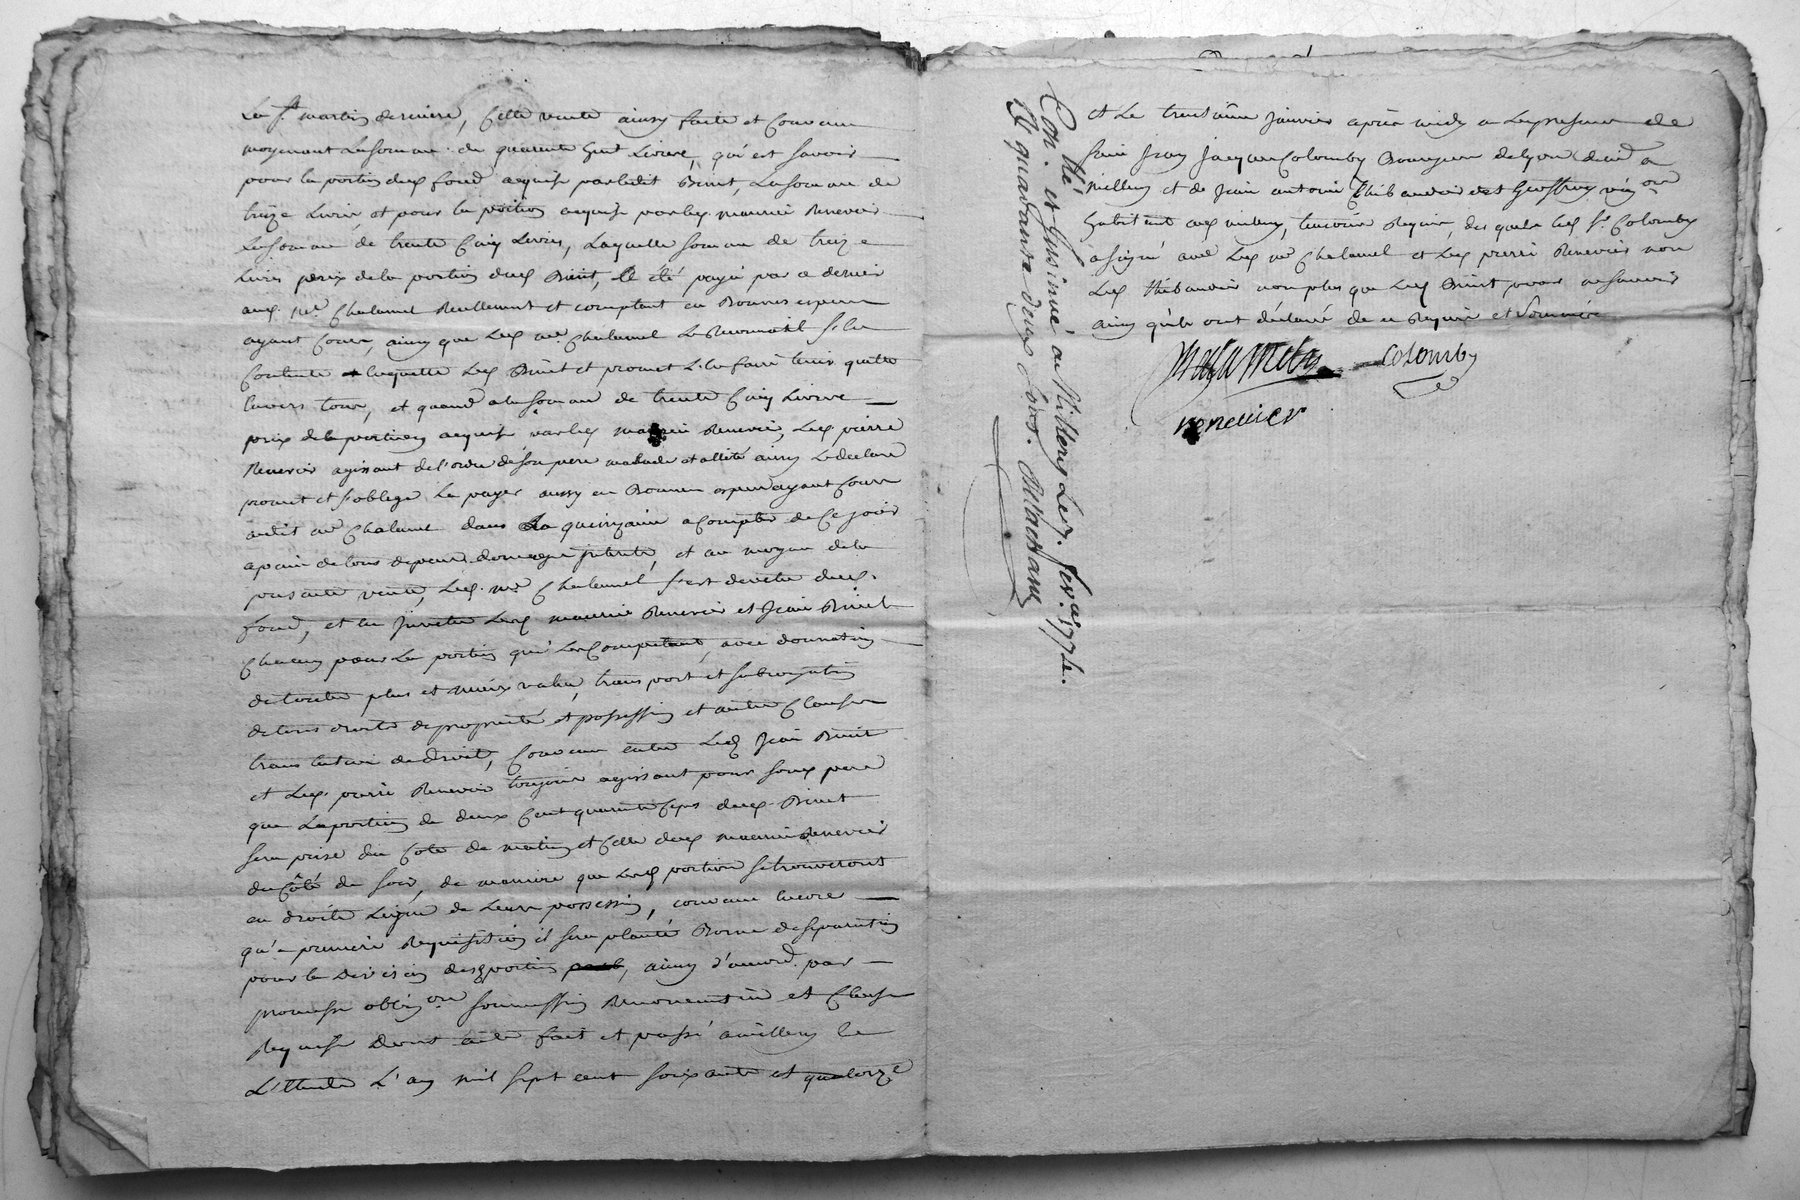 La st martin derniere, Cette vente ainsy faite et Convenue
moyenant la somme de quarante huit Livres, qui est savoir
pour la portion dud fond acquise par ledit Binit, la somme de
treize Livres, et pour la portion acquise par led maurice Renevier
la somme de trente Cinq Livres, Laquelle somme de treize
Livres prix de la portion dud Binit, a été payé par ce dernier
aud. mr Chalamel Reellement et comptant en Bonnes especes
ayant Cours, ainsy que Led mr Chalamel
Contente laquelle Led Binit et promet Le faire tenir quitte
Envers tous, et quand a la somme de trente Cinq Livres
prix de la portion acquise par led maurice Renevier, Led pierre
Renevier agissant de l'ordre de son pere malade et allité ainsy Le declare
promet et s'oblige La payer aussy en Bonnes especes ayant Cours
audit mr Chalamel dans La quinzaine a Compter de Ce jour
a peine de tous depens domages interets, et au moyen de la
presente vente, Led. mr Chalamel s'est devetu dud.
fond, et en Investu Lesd maurice Renevier et Jean Binit
Chacun pour La portion qui Les Competent, avec donnation
de toute plus et mieux value, transport et subrogation
de tous droits de propriété et possession et autres Clauses
translatives de droit, Convenu entre Led Jean Binit
et Led. pierre Renevier toujours agissant pour sond pere
que La portion de deux Cent quarante dud. Binit
sera prise du Coté de matin et Celle dud maurice Renevier
du Côté de soir, de maniere que Lesd portions se trouveront
en droite Ligne de Leurs possessions, convenu encore
qu'a premiere Requisition il sera planté Borne de separation
pour la Division desd portions, ainsy d'accord. par
promesse oblig on soumission Renonciation et Clause
Requise Dont acte fait et passé a millery le
L'Etude L'an mil sept cent soixante et quatorze
et Le trentième Janvier après midy en La presence de
sieur Jean Jacques Colomby Bourgeois de lyon
millery et de Jean antoine Thibaudier et Geoffray vig on
habitant aud millery, temoins Requis, des quels led sr Colomby
a signé avec Led mr Chalamel et Led pierre Renevier non
Led thibaudier non plus que Led Binit pour ne savoir
ainsy qu'ils ont déclaré de ce Requis et Sommés
Colomby
renevier
Con. lé et Insinué a Millery Le 7. fev. r 1774.
R quarante deux sous.